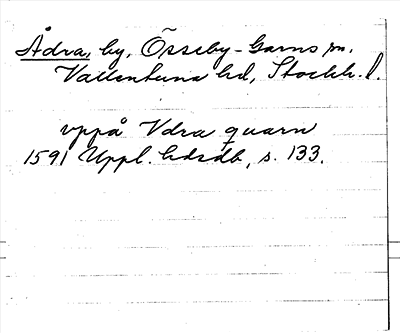 Ådra, by, Össeby-Garns sn.
Vallentuna hd, Stockh. l.
vppå Vdra quarn
1591 Uppl. hdrdb, s. 133.